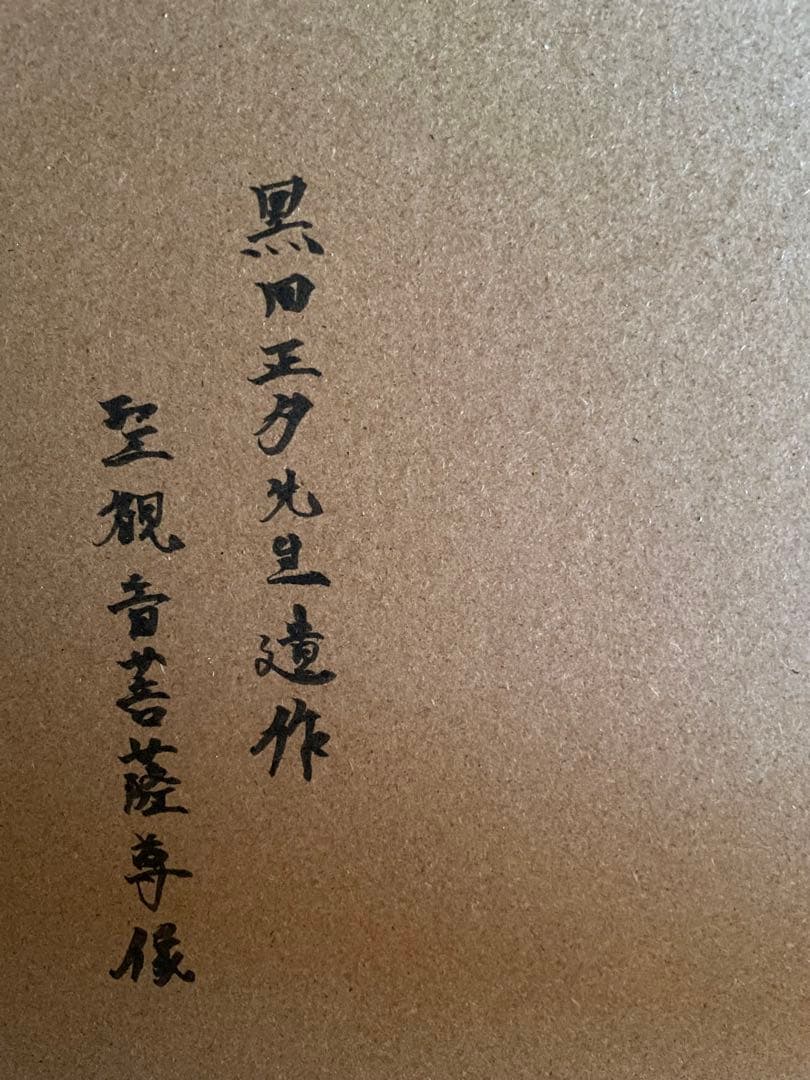 黒田王夕先生遺作
聖観音菩薩尊像